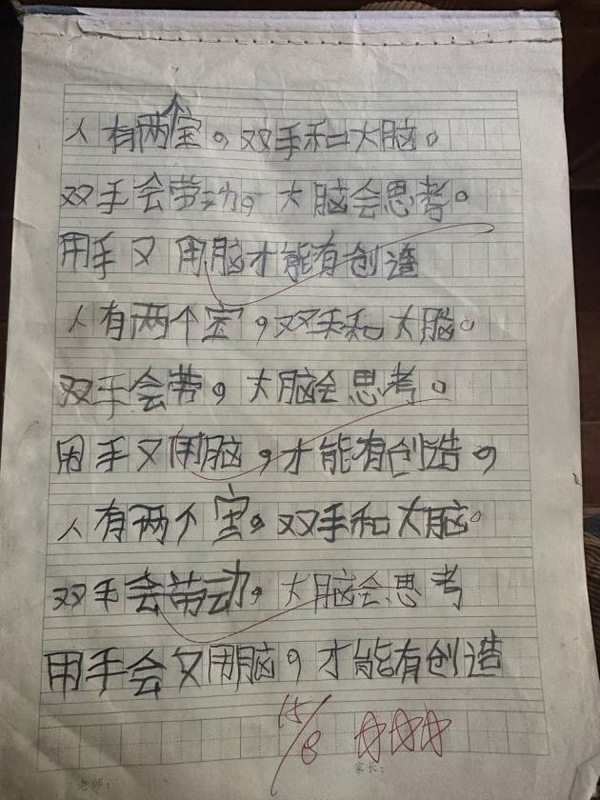 人有两个宝。双手和大脑。
双手会劳动,大脑会思考。
用手又用脑才能有创造
人有两个宝,双手和大脑。
双手会劳,大脑会思考。
用手又用脑,才能有创造,
人有两个宝。双手和大脑。
双手会劳动,大脑会思考
用手会又用脑,才能有创造
15/8
老师:
家长: